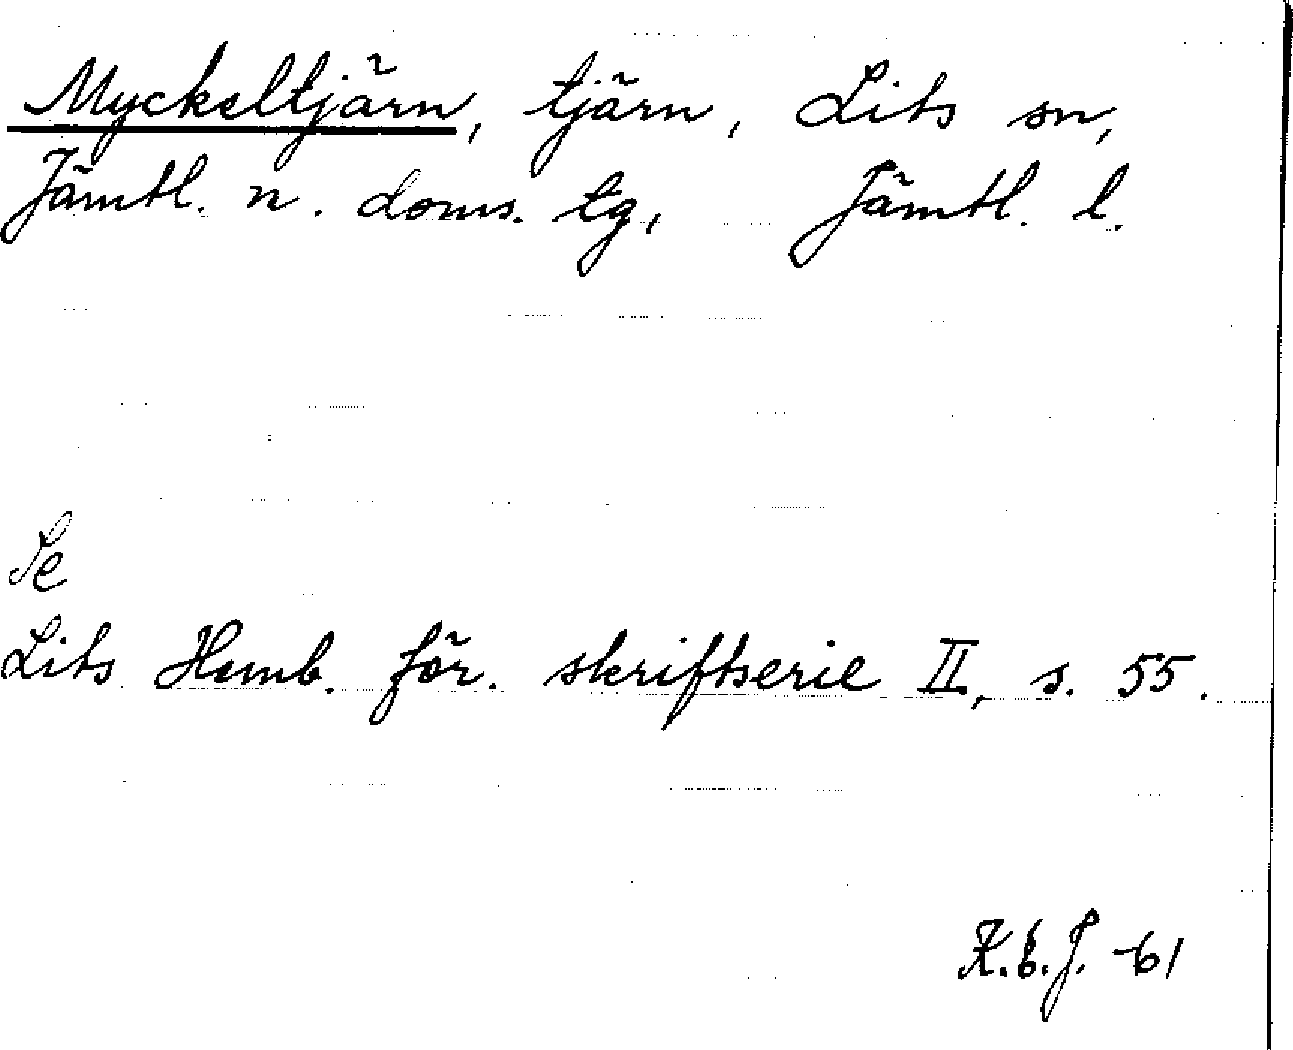 Myckeltjärn, tjärn, Lits sn,
Jämtl. n. doms. tg, Jämtl. l.
Se
Lits Hemb. för. skriftserie II, s. 55.
K.E.J. -61